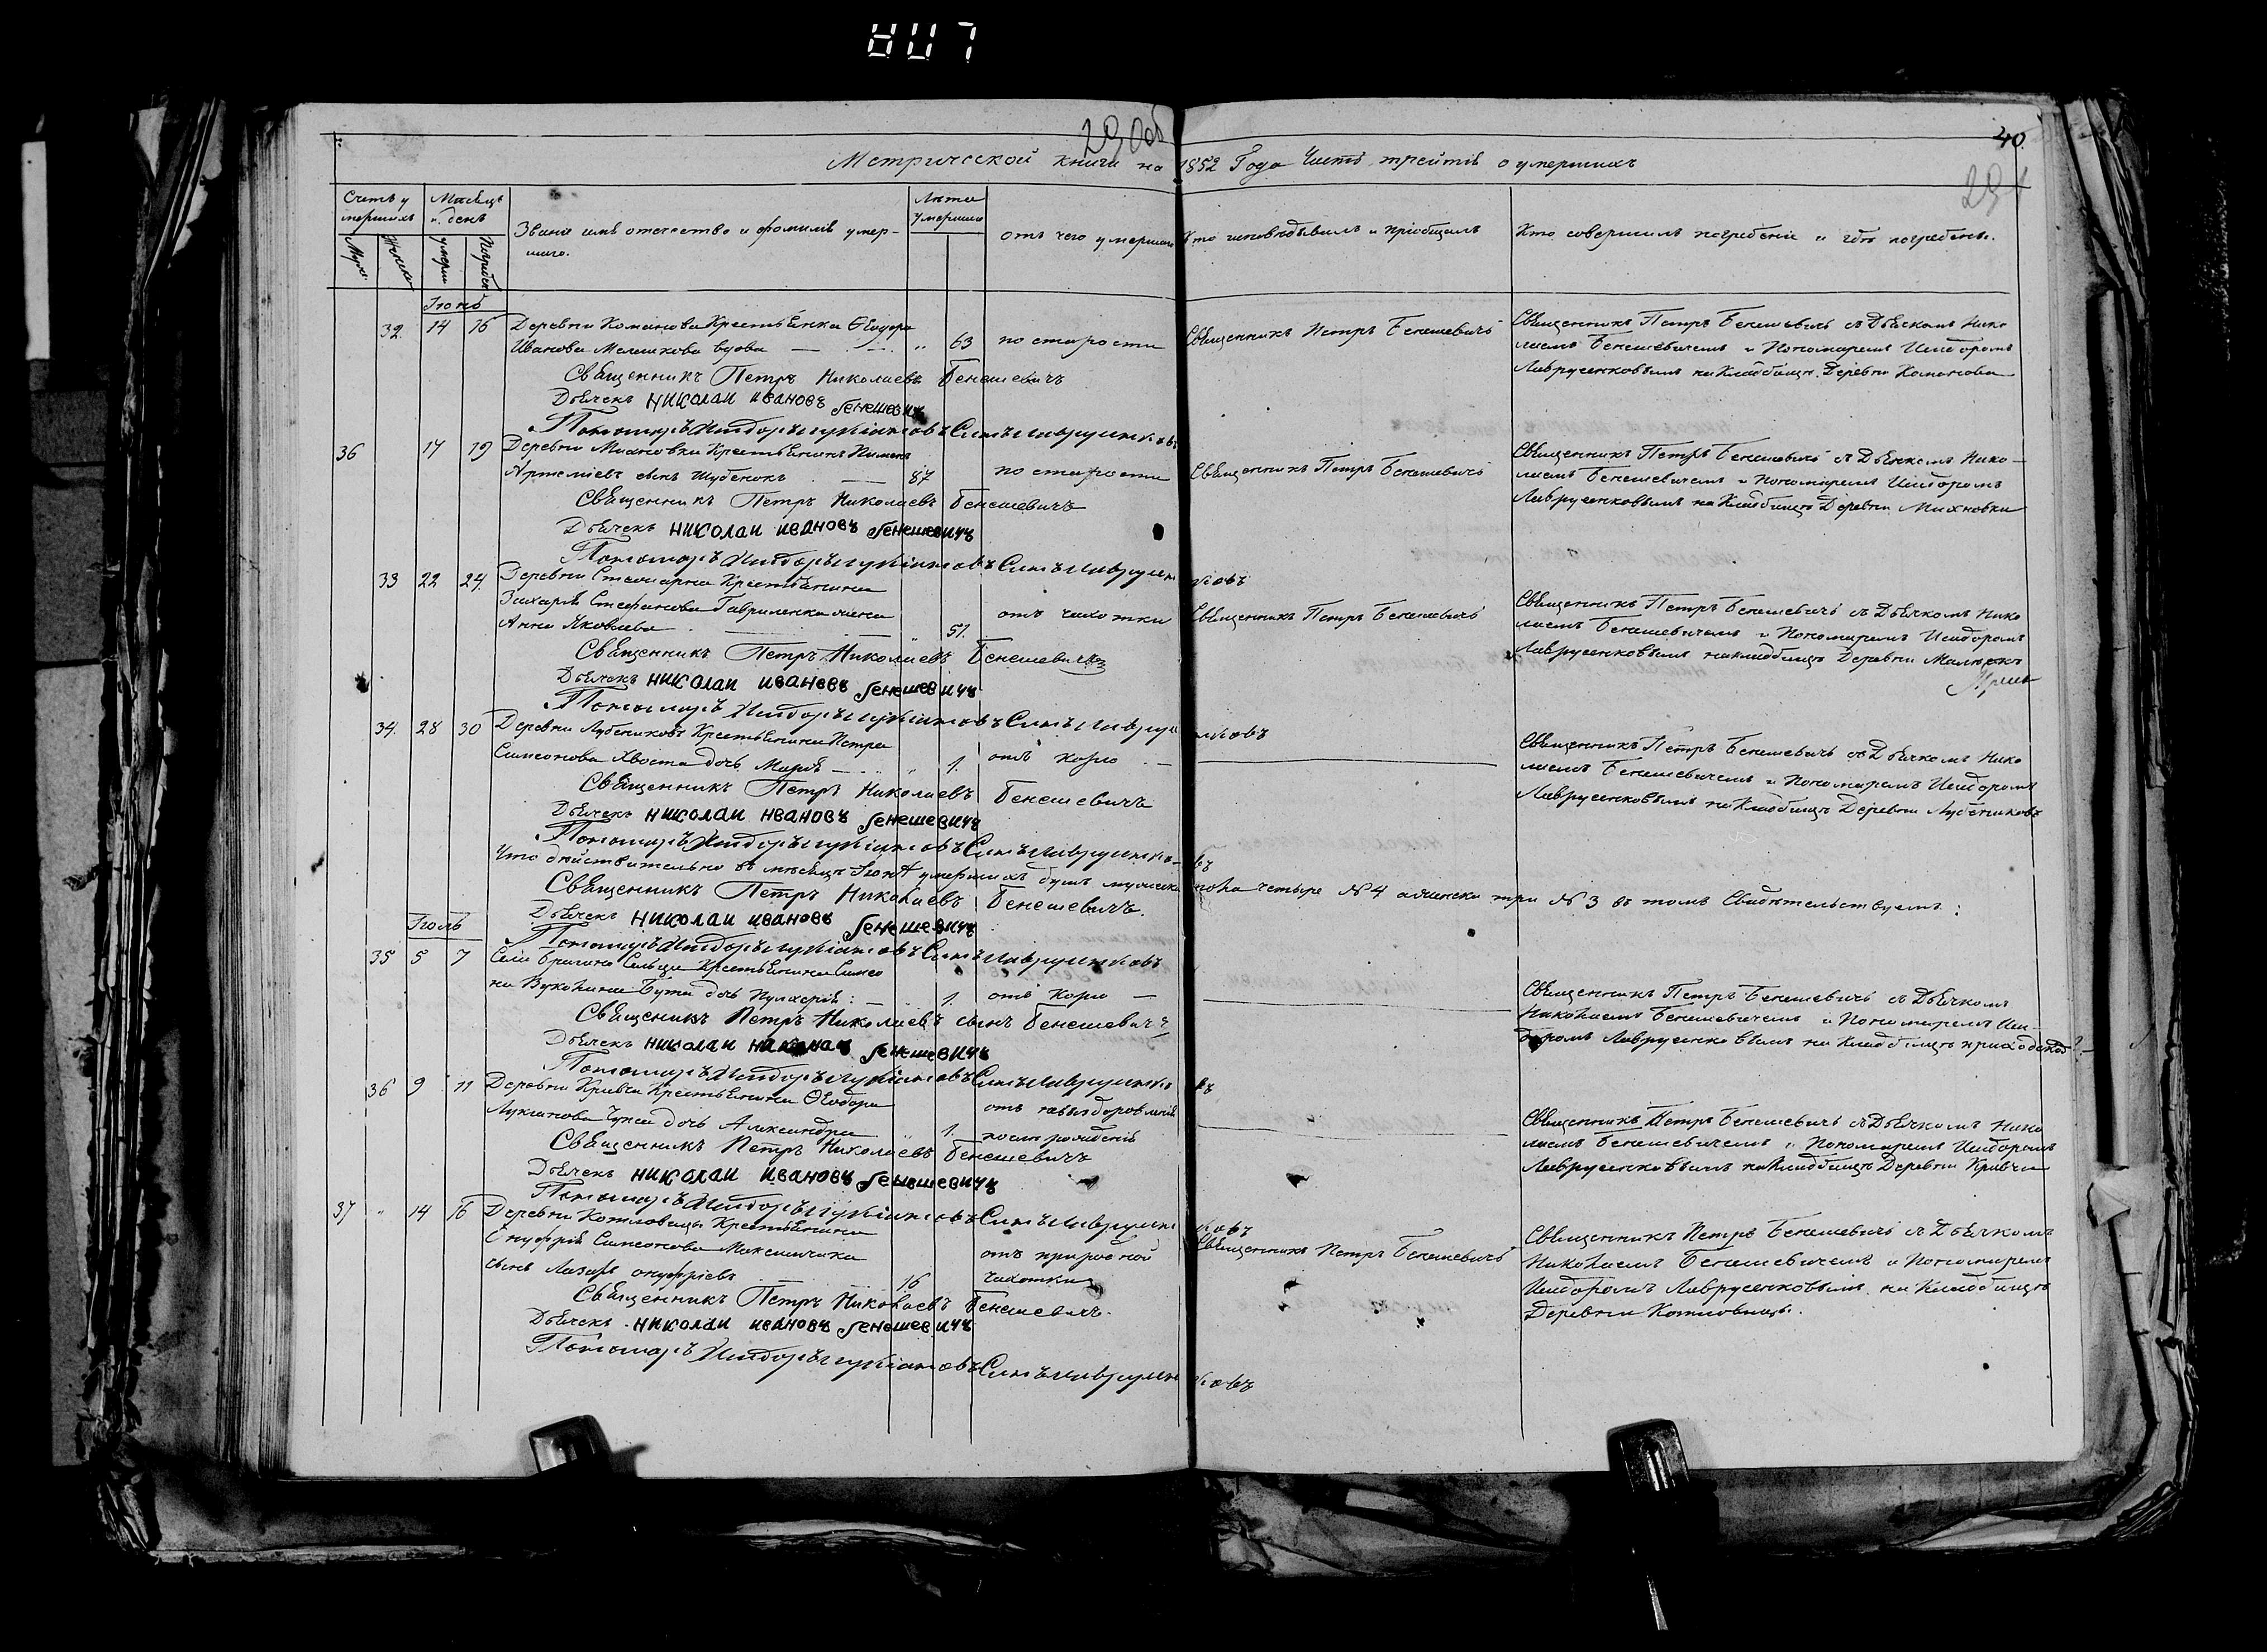 40
29 об
Метрической книги на 1852 Года Часть третія о умершихъ
Счетъ у
мершихъ
Мѣсяцъ
и день
Званіе имя отечество и фомилія умер-
шаго.
Лѣта
умершаго
отъ чего умершаго
Кто исповѣдывалъ и пріобщалъ
Кто совершилъ погребеніе и гдѣ погребены.
Муж:
Женска
умерш
Погребен
Іюнь
32. 14 16 Деревни Команова Крестьянка Ѳеодора
Иванова Мелешкова вдова 63 по старости Священникъ Петръ Бенешевичь
Священникъ Петръ Бенешевичь съ Дьячкомъ Нико
лаемъ Бенешевичемъ и Пономаремъ Исидоромъ
Лаврусенковымъ на Кладбищѣ Деревни Команова
Священникъ Петръ Николаевъ Бенешевичъ
Дьячекъ Николаи Ивановъ Бенешевичъ
Пономарь Исидоръ Сынъ Лаврусенковъ
36 17 19 Деревни Михновки Крестьянинъ Пименъ
Артеміевъ сынъ Шубенокъ 87 по старости Священникъ Петръ Бенешевичь
Священникъ Петръ Бенешевичь съ Дьячкомъ Нико-
лаемъ Бенешевичемъ и Пономаремъ Исидоромъ
Лаврусенковымъ на Кладбищѣ Деревни Михновки
Священникъ Петръ Николаевъ Бенешевичъ
Дьячекъ Николаи Ивановъ Бенешевичъ
Пономарь Исидоръ Сынъ Лаврусенковъ
33 22 24. Деревни Крестьянина
Захарія Стефанова Гавриленка жена
Анна Яковлева 51. отъ чахотки Священникъ Петръ Бенешевичь
Священникъ Петръ Бенешевичь съ Дьячкомъ Нико
лаемъ Бенешевичемъ и Пономаремъ Исидоромъ
Лаврусенковымъ на кладбищѣ Деревни
Священникъ Петръ Николаевъ Бенешевичъ
Дьячекъ Николаи Ивановъ Бенешевичъ
Пономарь Исидоръ Сынъ Лаврусенковъ
34. 28 30 Деревни Лубениковъ Крестьянина Петра
Симеонова Хвоста дочь Марія 1. отъ корю
Священникъ Петръ Бенешевичь съ Дьячкомъ Нико
лаемъ Бенешевичемъ и Пономаремъ Исидоромъ
Лаврусенковымъ на Кладбищѣ Деревни Лубениковъ
Священникъ Петръ Николаевъ Бенешевичъ
Дьячекъ Николаи Ивановъ Бенешевичъ
Пономарь Исидоръ Сынъ Лаврусенковъ
Что дѣйствительно въ мѣсяцѣ Іюнѣ умершихъ было мужеска пола четыре № 4 а женска три № 3 въ томъ Свидѣтельствуемъ:
Священникъ Петръ Николаевъ Бенешевичъ.
Дьячекъ Николаи Ивановъ Бенешевичъ
Пономарь Исидоръ Сынъ Лаврусенковъ
Іюль
35 5 7 Села Брагина Сельца Крестьянина Симео
на Вуколина Бута дочь Пулхерія: 1. отъ корю
Священникъ Петръ Бенешевичь съ Дьячкомъ
Николаемъ Бенешевичемъ и Пономаремъ Иси-
доромъ Лаврусенковымъ на Кладбищѣ приходской
Священникъ Петръ Николаевъ сынъ Бенешевичъ
Дьячекъ Николаи Бенешевичъ
Пономарь Исидоръ Сынъ Лаврусенковъ
36 9 11 Деревни Кривча Крестьянина Ѳеодора
Лукьянова дочь Александра 1. отъ невыздоровленія
после рожденія
Священникъ Петръ Бенешевичь съ Дьячкомъ Нико
лаемъ Бенешевичемъ и Пономаремъ Исидоромъ
Лаврусенковымъ на Кладбищѣ Деревни Кривча
Священникъ Петръ Николаевъ Бенешевичъ
Дьячекъ Николаи Ивановъ Бенешевичъ
Пономарь Исидоръ Сынъ Лаврусенковъ
37 14 16 Деревни Котловицы Крестьянина
Онуфрія Симеонова Максимчика
сынъ Лазарь онуфріевъ 16 отъ природной
чахотки
Священникъ Петръ Бенешевичь
Священникъ Петръ Бенешевичь съ Дьячкомъ
Николаемъ Бенешевичемъ и Пономаремъ
Исидоромъ Лаврусенковымъ на Кладбищѣ
Деревни Котловицы.
Священникъ Петръ Николаевъ Бенешевичъ.
Дьячекъ Николаи Ивановъ Бенешевичъ
Пономарь Исидоръ Сынъ Лаврусенковъ